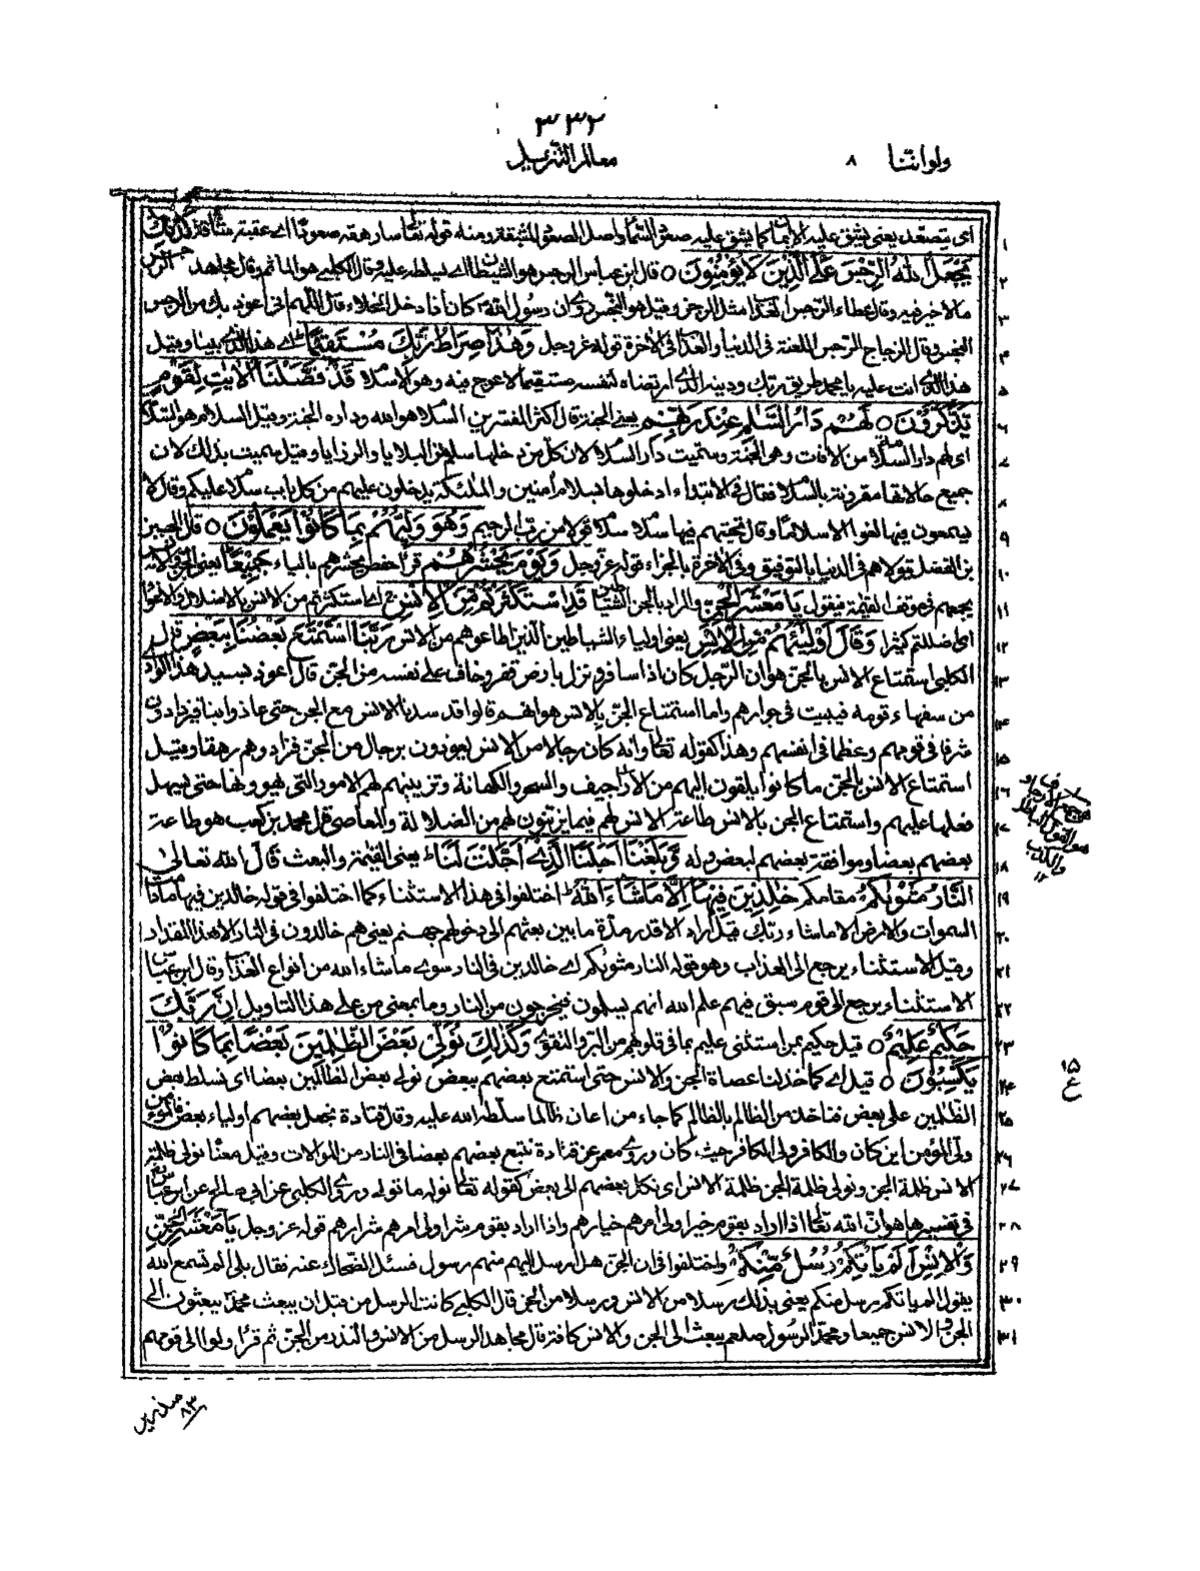 ٣٣٢
ولو اننا ٨ معالم التنزيل
اى يتصعد يعنى يشق عليه الايمان كما يشق عليه صعود السماء واصل الصعود المشقة ومنه قوله تعالى سارهقه صعودا اے عقبة شاقة كَذٰلِكَ
يَجْعَلُ اللهُ الرِّجْسَ عَلَى الَّذِيْنَ لَا يُؤْمِنُوْنَ ○ قال ابن عباس الرجس هو الشيطان اے يسلطه عليه وقال الكلبي هو الماثم وقال مجاهد الرجس
ما لا خير فيه وقال عطاء الرجس العذاب مثل الرجز وقيل هو النجس روى ان رسول الله كان اذا دخل الخلاء قال اللهم انى اعوذ بك من الرجس
النجس وقال الزجاج الرجس اللعنة فى الدنيا والعذاب فى الآخرة قوله عز وجل وَهٰذَا صِرَاطُ رَبِّكَ مُسْتَقِيْمًا اے هذا الذى بينا وقيل
هذا الذى انت عليه يا محمد طريق ربك ودينه الذى ارتضاه لنفسه مستقيما لا عوج فيه وهو الاسلام قَدْ فَصَّلْنَا الْاٰيٰتِ لِقَوْمٍ
يَّذَّكَّرُوْنَ ○ لَهُمْ دَارُ السَّلٰمِ عِنْدَ رَبِّهِمْ يعنى الجنة قال اكثر المفسرين السلام هو الله وداره الجنة وقيل السلام هو السلامة
اى لهم دار السلامة من الآفات وهو الجنة وسميت دار السلام لان كل من دخلها سلم من البلايا والرزايا وقيل سميت بذلك لان
جميع حالاتها مقرونة بالسلام فقال فى الابتداء ادخلوها بسلام آمنين والملئكة يدخلون عليهم من كل باب سلام عليكم وقال لا
يسمعون فيها لغوا الا سلاما وقال تحيتهم فيها سلام سلام قولا من رب الرحيم وَهُوَ وَلِيُّهُمْ بِمَا كَانُوْا يَعْمَلُوْنَ ○ قال الحسين
بن الفضل يتولاهم فى الدنيا بالتوفيق وفى الآخرة بالجزاء قوله عز وجل وَيَوْمَ يَحْشُرُهُمْ قرأ حفص يحشرهم بالياء جَمِيْعًا يعنى الجن والانس
يجمعهم فى موقف القيمة فيقول يَا مَعْشَرَ الْجِنِّ والمراد بالجن الشياطين قَدِ اسْتَكْثَرْتُمْ مِّنَ الْاِنْسِ اے استكثرتم من الانس بالاضلال والاغواء
اى اضللتم كثيرا وَقَالَ اَوْلِيٰٓئُهُمْ مِّنَ الْاِنْسِ يعنى اولياء الشياطين الذين اطاعوهم من الانس رَبَّنَا اسْتَمْتَعَ بَعْضُنَا بِبَعْضٍ قال
الكلبى استمتاع الانس بالجن هو ان الرجل كان اذا سافر ونزل بارض قفر وخاف على نفسه من الجن قال اعوذ بسيد هذا الوادى
من سفهاء قومه فيبيت فى جوارهم واما استمتاع الجن بالانس هو انهم قالوا قد سدنا الانس مع الجن حتى عاذوا بنا فيزدادون
شرفا فى قومهم وعظما فى انفسهم وهذا كقوله تعالى وانه كان رجال من الانس يعوذون برجال من الجن فزادوهم رهقا وقيل
استمتاع الانس بالجن ما كانوا يلقون اليهم من الاراجيف والسحر والكهانة وتزيينهم لهم الامور التى يهوونها حتى يسهل
فعلها عليهم واستمتاع الجن بالانس طاعة الانس لهم فيما يزينون لهم من الضلالة والمعاصى قال محمد بن كعب هو طاعة
بعضهم بعضا وموافقة بعضهم لبعض وَّبَلَغْنَا اَجَلَنَا الَّذِيْ اَجَّلْتَ لَنَا يعنى القيمة والبعث قال الله تعالى
النَّارُ مَثْوٰىكُمْ مقامكم خٰلِدِيْنَ فِيْهَا اِلَّا مَا شَآءَ اللهُ اختلفوا فى هذا الاستثناء كما اختلفوا فى قوله خالدين فيها ما دامت
السموات والارض الا ما شاء ربك قيل اراد الا قدر مدة ما بين بعثهم الى دخولهم جهنم يعنى هم خالدون فى النار الا هذا المقدار
وقيل الاستثناء يرجع الى العذاب وهو قوله النار مثوىكم اے خالدين فى النار سوے ما شاء الله من انواع العذاب وقال ابن عباس
الاستثناء يرجع الى قوم سبق فيهم علم الله انهم يسلمون فيخرجون من النار وما بمعنى من على هذا التاويل اِنَّ رَبَّكَ
حَكِيْمٌ عَلِيْمٌ ○ قيل حكيم بمن استثنى عليم بما فى قلوبهم من البر والتقوى وَكَذٰلِكَ نُوَلِّيْ بَعْضَ الظّٰلِمِيْنَ بَعْضًا بِمَا كَانُوْا
يَكْسِبُوْنَ ○ قيل اے كما خذلنا عصاة الجن والانس حتى استمتع بعضهم ببعض نولى بعض الظالمين بعضا اى نسلط بعض
الظلمين على بعض فناخذ من الظالم بالظالم كما جاء من اعان ظالما سلطه الله عليه وقال قتادة نجعل بعضهم اولياء بعض فالمؤمن
ولى المؤمن اين كان والكافر ولى الكافر حيث كان وروے معمر عن قتادة نتبع بعضهم بعضا فى النار من الموالات وقيل معناه نولى ظلمة
الانس ظلمة الجن ونولى ظلمة الجن ظلمة الانس اى نكل بعضهم الى بعض كقوله تعالى نوله ما تولى وروے الكلبى عن ابى صالح عن ابن عباس
فى تفسيرها هو ان الله تعالى اذا اراد بقوم خيرا ولى امرهم خيارهم واذا اراد بقوم شرا ولى امرهم شرارهم قوله عز وجل يَا مَعْشَرَ الْجِنِّ
وَالْاِنْسِ اَلَمْ يَاْتِكُمْ رُسُلٌ مِّنْكُمْ واختلفوا فى ان الجن هل ارسل اليهم منهم رسول فسئل الضحاك عنه فقال بلى الم تسمع الله
يقول الم ياتكم رسل منكم يعنى بذلك رسلا من الانس ورسلا من الجن قال الكلبى كانت الرسل من قبل ان يبعث محمد يبعثون الى
الجن والانس جميعا ومحمد الرسول صلعم يبعث الى الجن والانس كافة قال مجاهد الرسل من الانس والنذر من الجن ثم قرأ ولوا الى قومهم
١
٢
٣
٤
٥
٦
٧
٨
٩
١٠
١١
١٢
١٣
١٤
١٥
١٦
١٧
١٨
١٩
٢٠
٢١
٢٢
٢٣
٢٤
٢٥
٢٦
٢٧
٢٨
٢٩
٣٠
٣١
١٥
ع
منذرين
٨٣